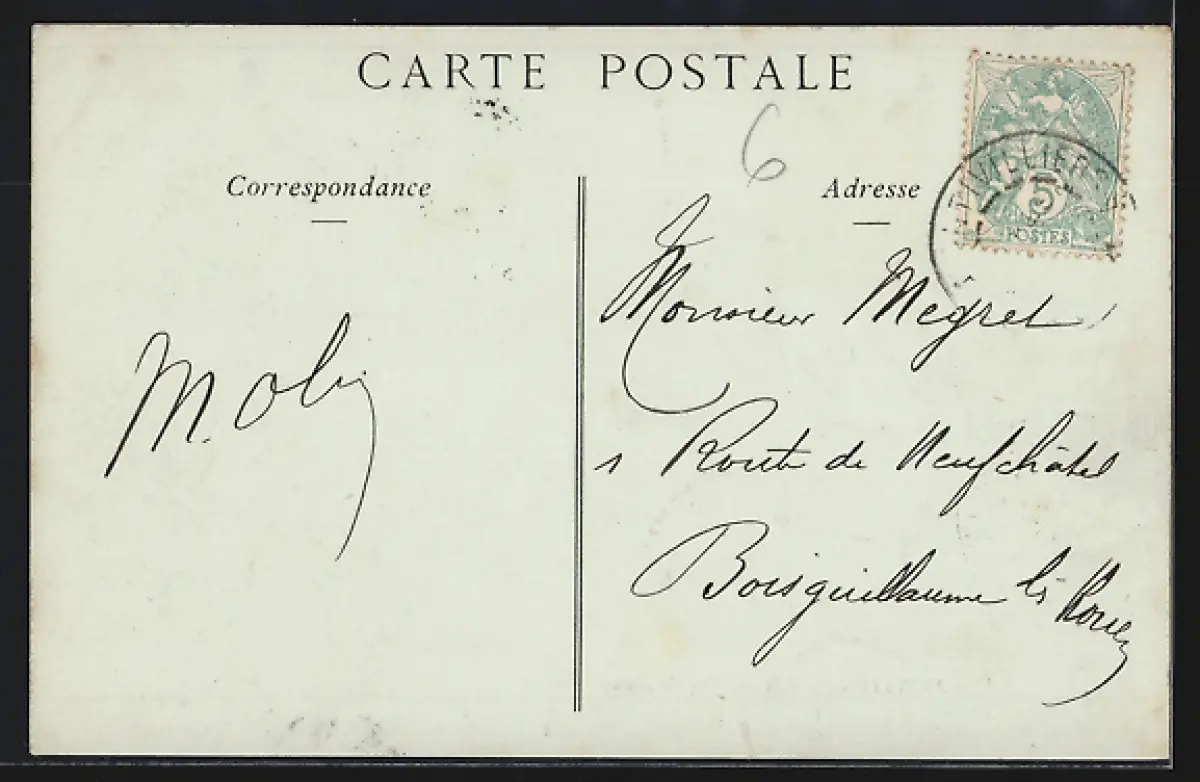 CARTE POSTALE
6
Correspondance
Adresse
TIVILLIERS
5
POSTES
Monsieur Mégret
1 Route de Neufchâtel
Boisguillaume lès Rouen
M.